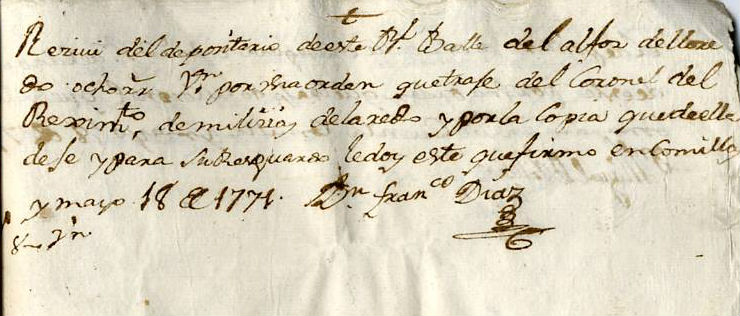 Reziui del depositario de este Rl. Balle del alfoz dellore
do ocho rr Vn por una orden que trase del Coronel del
Reximto, de milizias de laredo y por la Copia que de ella
dese y para su Resguardo le doy este que firmo en Comillas
y mayo 18 de 1771. Dn franco Diaz
8 rr Vn